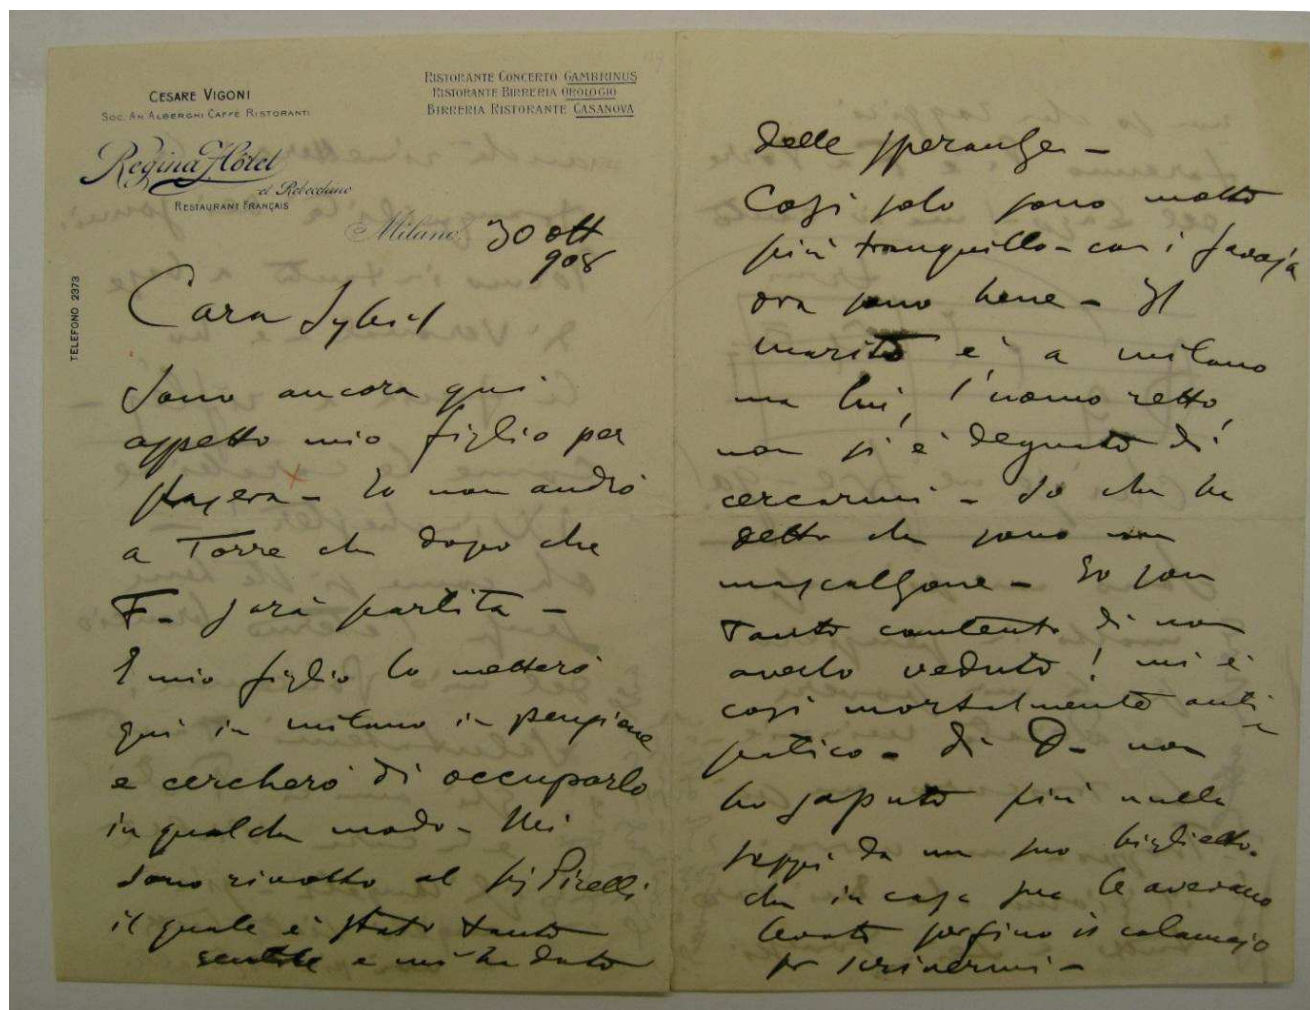 CESARE VIGONI
SOC. AN. ALBERGHI CAFFÈ RISTORANTI
Regina Hôtel
et Rebecchino
RESTAURANT FRANÇAIS
RISTORANTE CONCERTO GAMBRINUS
RISTORANTE BIRRERIA OROLOGIO
BIRRERIA RISTORANTE CASANOVA
TELEFONO 2373
Milano, 30 ott
908
Cara Sybil
Sono ancora qui
aspetto mio figlio per
stasera - Io non andrò
a Torre che dopo che
F- sarà partita -
E mio figlio lo metterò
qui in milano in pensione
e cercherò di occuparlo
in qualche modo - Mi
sono rivolto al Sig Pirelli
il quale è stato tanto
gentile e mi ha dato
delle speranze -
Così solo sono molto
più tranquillo - con i Savoja
ora sono bene - Il
marito è a milano
ma lui, l'uomo retto,
non si è degnato di
cercarmi - So che ha
detto che sono un
mascalzone - Io son
tanto contento di non
averlo veduto! mi è
così mortalmente anti
patico - di D- non
ho saputo più nulla
seppi da un suo biglietto
che in casa sua le avevano
levato perfino il calamajo
per scrivermi -